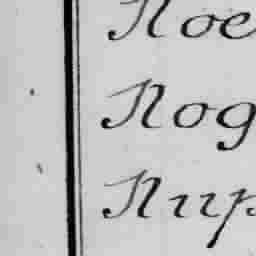 Пое
Под
Пир